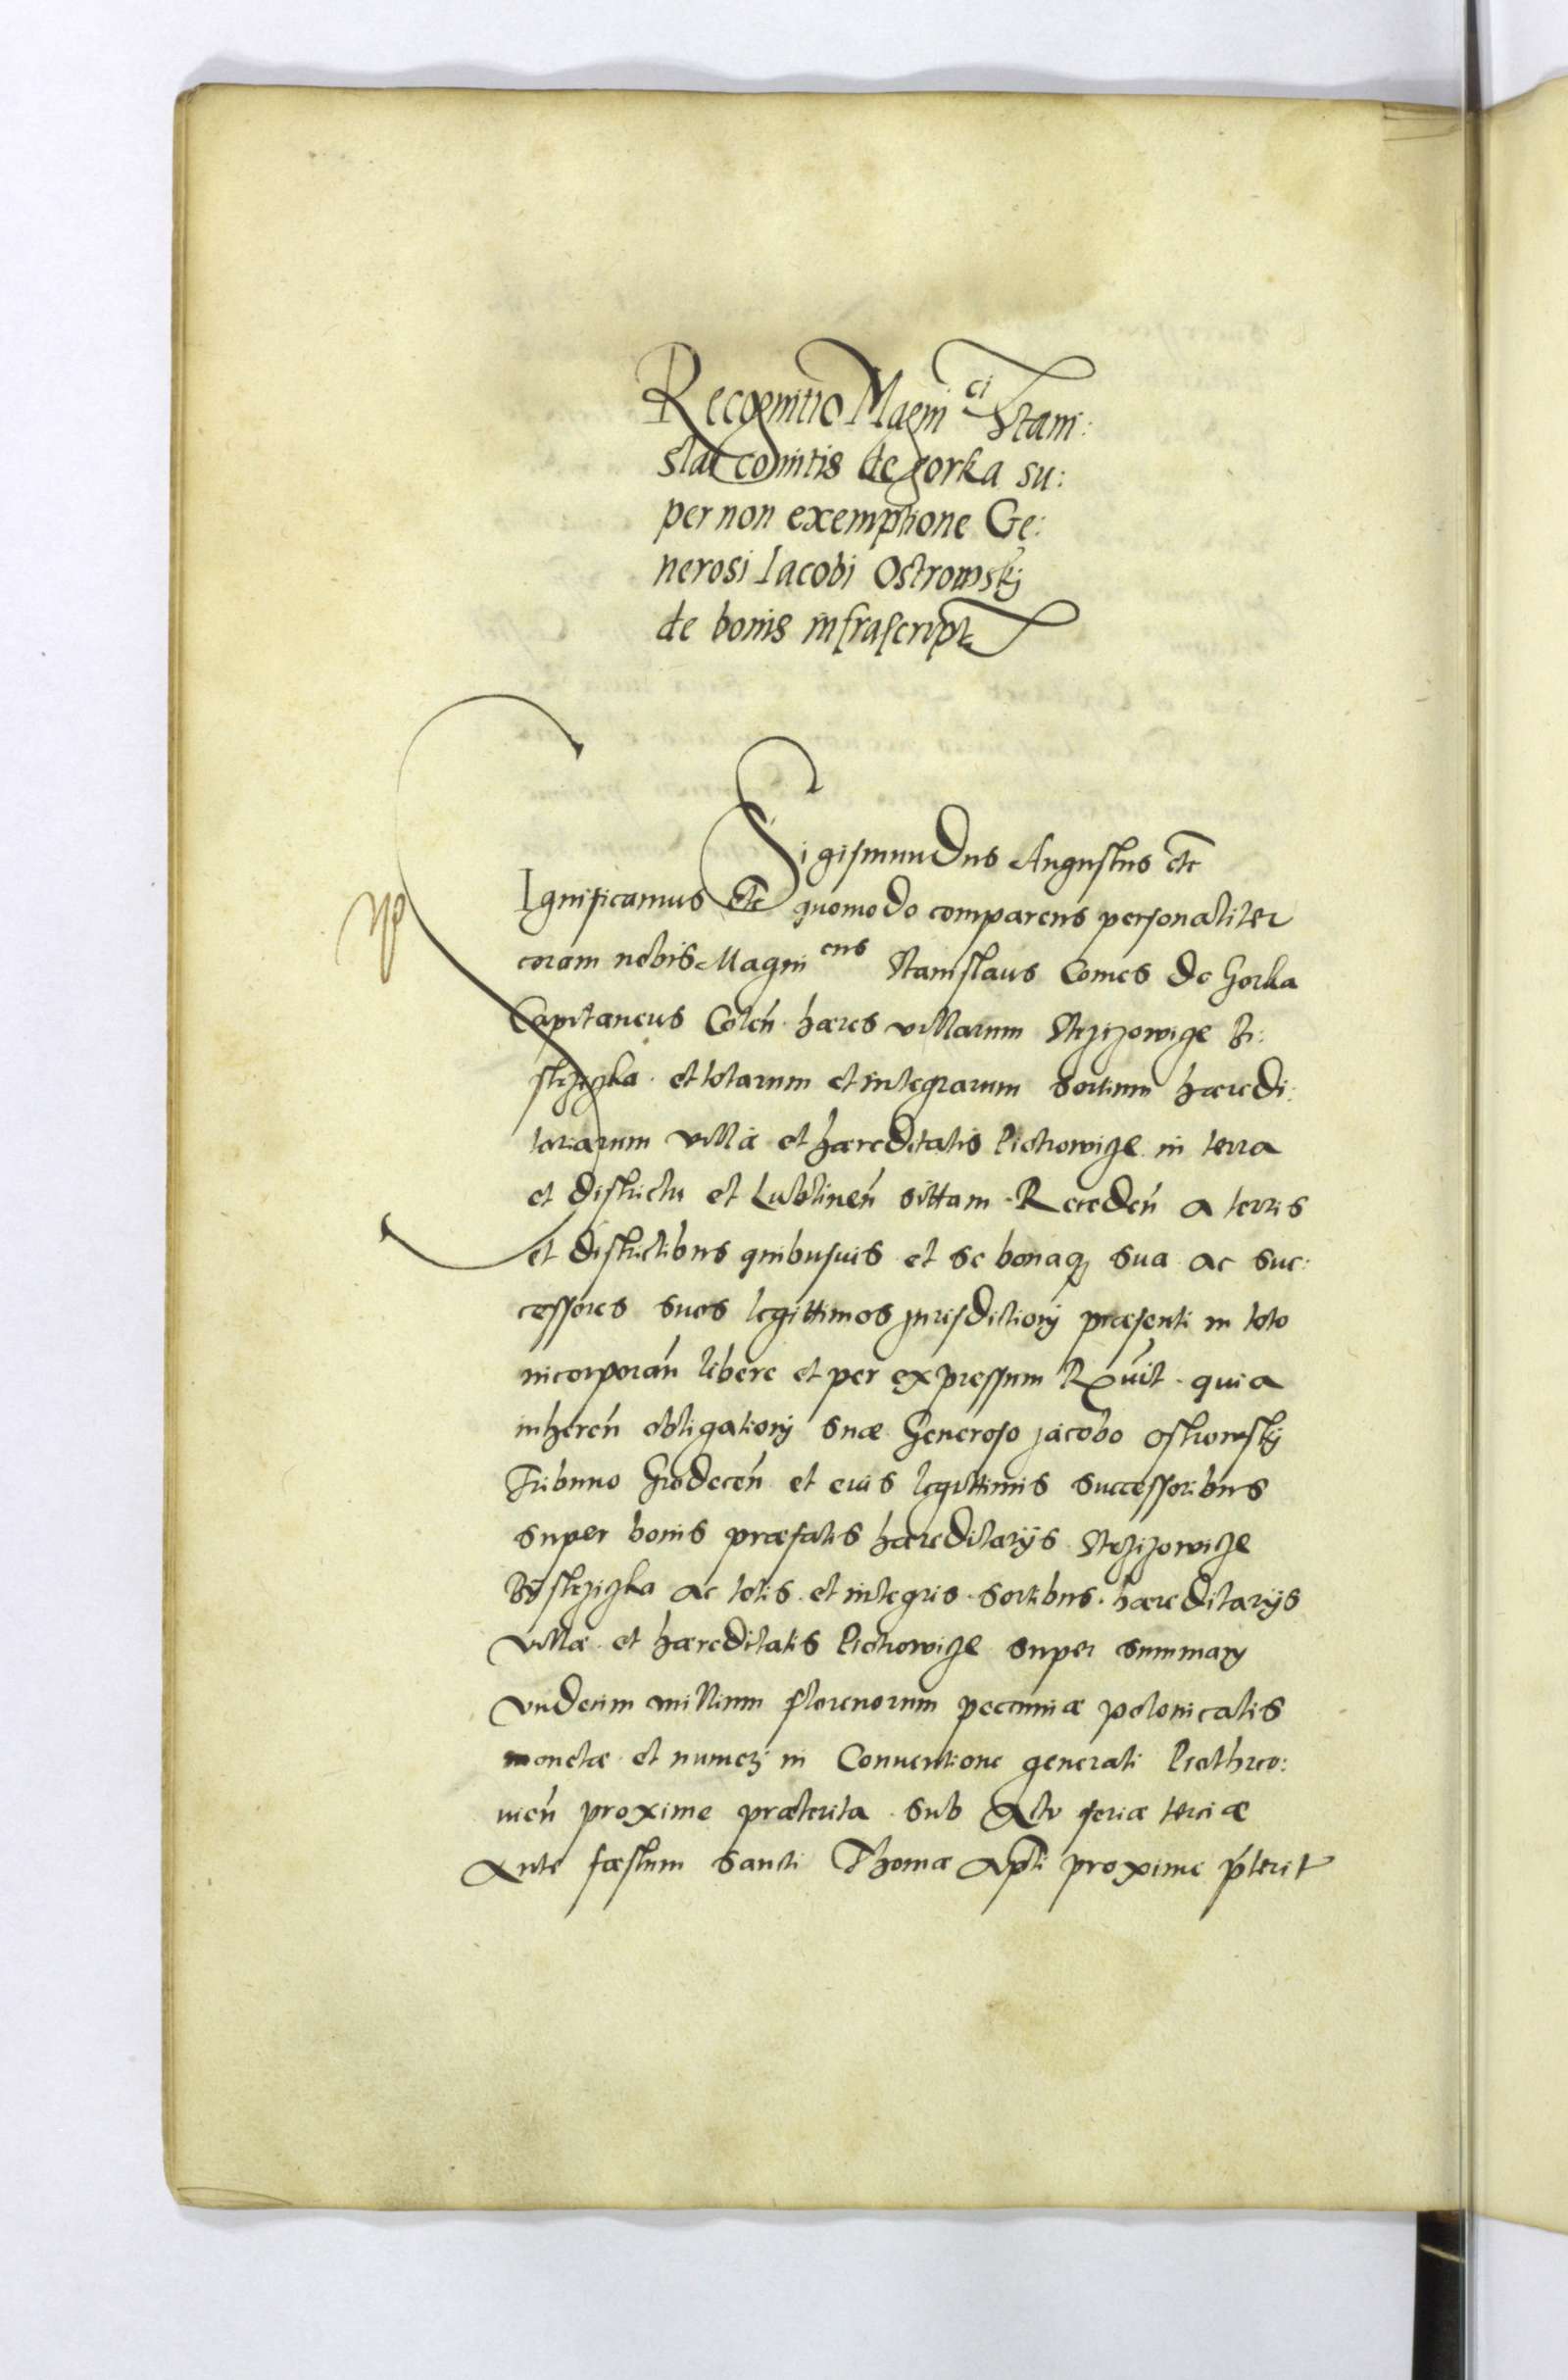 Recognitio Magni ci Stani:
slai comitis de gorka su:
per non exemptione Ge:
nerosi Iacobi Ostrowskÿ
de bonis infrascript
Sigismundus Augustus etc
Ignificamus etc quomodo comparens personaliter
coram nobis Magni cus Stanislaus Comes de Gorka
Capitaneus Colen haeres villarum Strzizowicze Bi:
strziczka et totarum et integrarum sortium haeredi:
tariarum villae et haereditatis Piotrowicze in terra
et districtu et Lublinen sittam Receden a terris
et districtibus quibusuis et se bonaq sua ac suc:
cessores suos legittimos jurisdictioni praesenti in toto
incorporan libere et per expressum Rxuit quia
inheren obligationi suae Generoso jacobo ostrowskÿ
Tribuno Grodecen et eius legittimis successoribus
super bonis praefatis haereditarÿs Strzizowicze
Bÿstrziczka ac totis et integris sortibus haereditarÿs
villae et haereditatis Piotrowicze super summam
vndecim millium florenorum pecuniae polonicalis
monetae et numeri in Conuentione generali Piothrco:
uien proxime praeterita sub Actu feriae terciae
Ante faestum sancti Thomae Apli proxime pterit